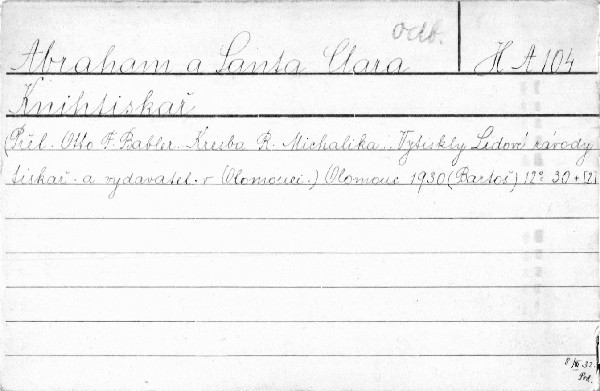 odb.
Abraham a Santa Clara H A 104
Knihtiskař
(Přel. Otto F. Babler. Kresba R. Michalika. Vytiskly Lidové závody
tiskař. a vydavatel. v Olomouci.) Olomouc 1930 (Bartoš) 12° 30 + [2]
Prd.